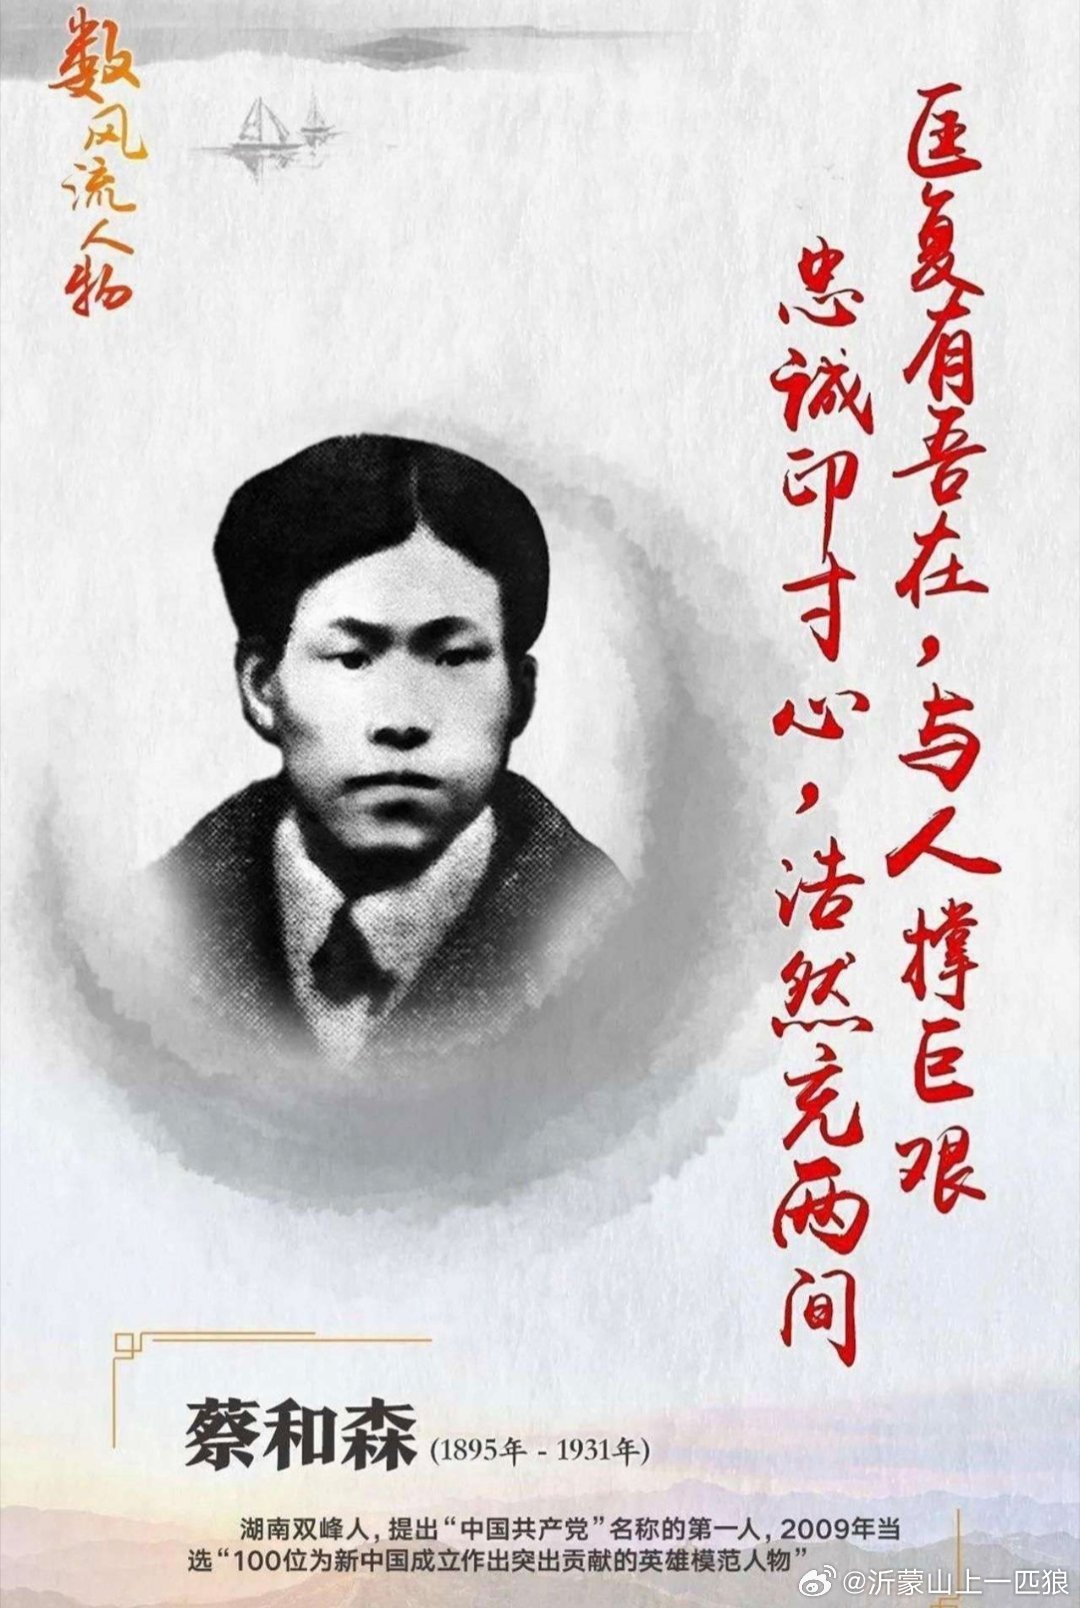 数风流人物
匡复有吾在，与人撑巨艰
忠诚印寸心，浩然充两间
蔡和森 (1895年 - 1931年)
湖南双峰人，提出“中国共产党”名称的第一人，2009年当
选“100位为新中国成立作出突出贡献的英雄模范人物”
@沂蒙山上一匹狼